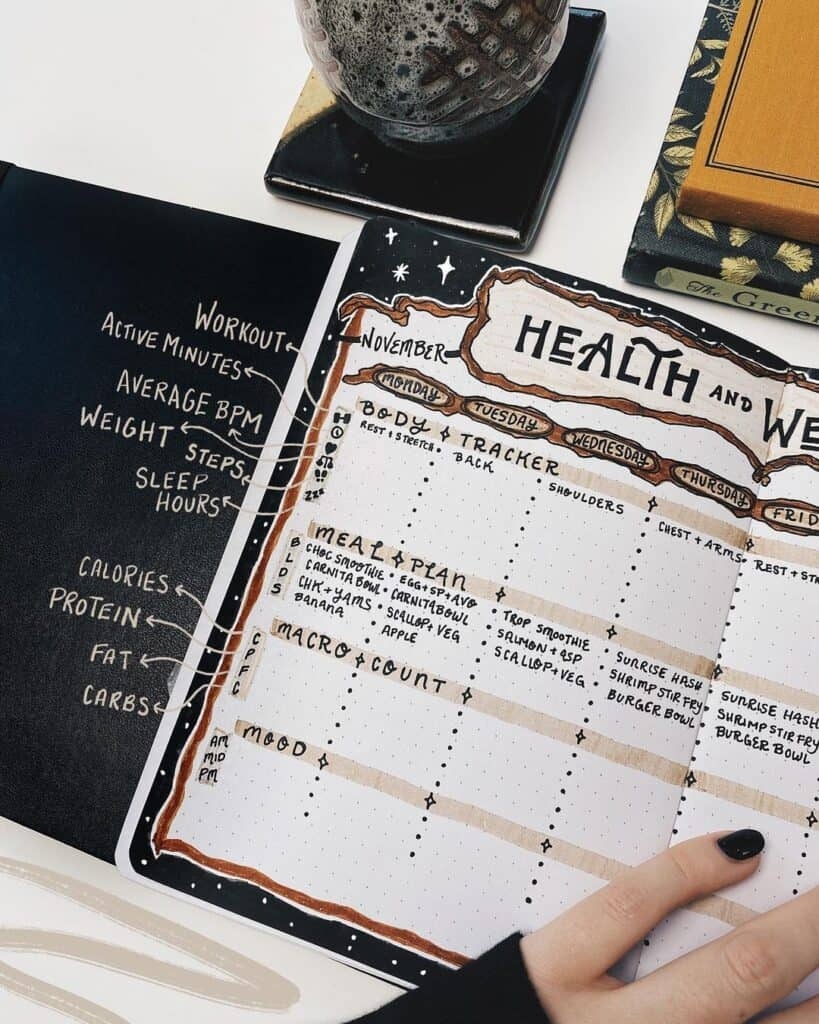 The Green
WORKOUT
ACTIVE MINUTES
AVERAGE BPM
WEIGHT
STEPS
SLEEP
HOURS
CALORIES
PROTEIN
FAT
CARBS
NOVEMBER
HEALTH AND WE
MONDAY
TUESDAY
WEDNESDAY
THURSDAY
FRID
BODY TRACKER
REST + STRETCH
BACK
SHOULDERS
CHEST + ARMS
REST + ST
zzz
MEAL PLAN
B
L
D
S
CHOC SMOOTHIE
CARNITA BOWL
CHK + YAMS
BANANA
EGG + SP + AVO
CARNITA BOWL
SCALLOP + VEG
APPLE
TROP SMOOTHIE
SALMON + ASP
SCALLOP + VEG
SUNRISE HASH
SHRIMP STIR FRY
BURGER BOWL
SUNRISE HASH
SHRIMP STIR FRY
BURGER BOWL
MACRO COUNT
C
P
F
C
MOOD
AM
MID
PM